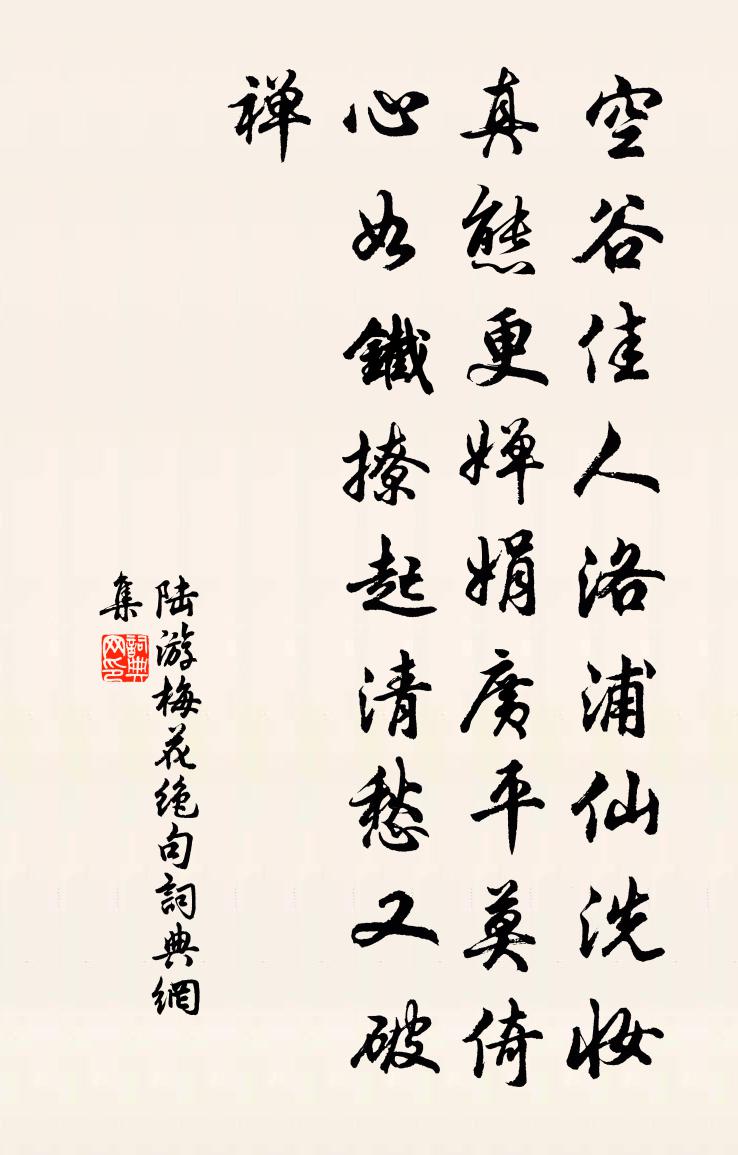 空谷佳人洛浦仙洗妆
真態更婵娟廣平莫倚
心如鐵撩起清愁又破
禅
陆游梅花绝句詞典網
集
詞典网印